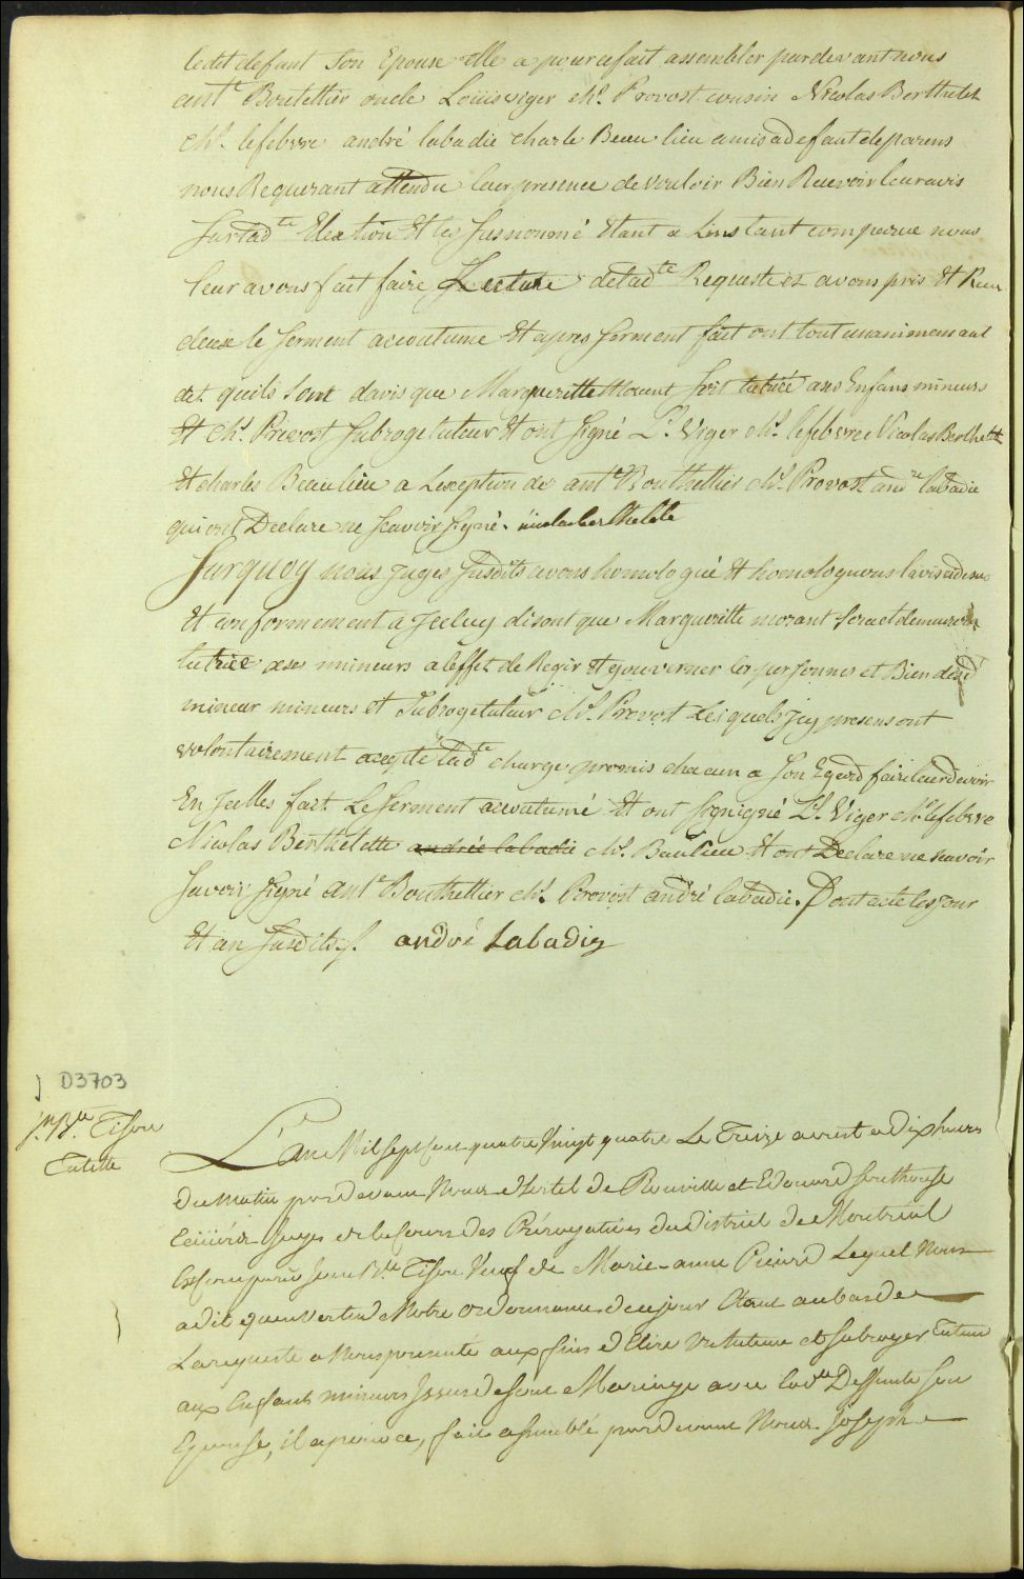 ledit defunt Son Epouse elle a pour cefait assembler pardevant nous
ant.e Boutellier oncle Louis viger Ch.s Provost cousin Nicolas Berthelet
Ch.s lefebvre andré labadie charle Beau lieu amis adefaut deparens
nous Requerant attendu leur presence de vouloir Bien Recevoir leur avis
Sur lad.te Election Et les susnommé Etant a Linstant comparue nous
leur avons fait faire Lecture de lad.te Requeste et avons pris Et Recu
deux le serment accoutume Et apres serment fait ont tout unanimement
dit quils sont davis que Margueritte Morant soit tutrice a ses Enfans mineurs
Et Ch.s Provost Subroge tuteur Et ont signé L.s Viger Ch.s lefebvre Nicolas Berthelett
Et charles Beaulieu a Lexeption de ant.e Bouthellier Ch.s Provost and.re labadie
qui ont Declare ne scavoir signé.
Surquoy nous Juges Susdits avons homologué Et homologuons lavis
Et conformement a Jceluy disont que Marguerite morant sera et demeurera
tutrice a ses mineurs a leffet de Regir Et gouverner les personnes et Bien desd
mineur mineurs et Subrogetuteur Ch.s Provost Lesquels Jcy presens ont
volontairement accepté lad.te charge promis chacun a son Egard faire leur devoir
En Jcelles fait Le Serment accoutumé Et ont signigné L.s Viger Ch.s lefebvre
Nicolas Berthelette andrié labadie Ch.s Baulieu Et ont Declare ne scavoir
savoir signé ant.e Bouthellier Ch.s Provost andré labadie. Dont acte les jour
Et an susdits. andré Labadiy
D3703
J.n B.te Tison
Tutelle
L'an Mil Sept Cens quatre Vingt quatre Le Treize aoust a dix heures
du Matin pardevant Nous Hertel De Rouville et Edouard Southouse
Ecuiéer Juges de la Cours des Prérogatives du district de Montreal
Est Comparu Jean B.te Tison Veuf de Marie-anne Picard Lequel Nous
a dit quen Vertu de Notre ordonnance de cejour Etant au bas de
La requeste a Nous presenté aux fins d'Elire un tuteur et subroger Tuteur
aux Enfants mineurs Jssus de son Mariage avec lad.te Deffunte son
Epouse, il a pour ce, fait assemblé pardevant Nous Joseph